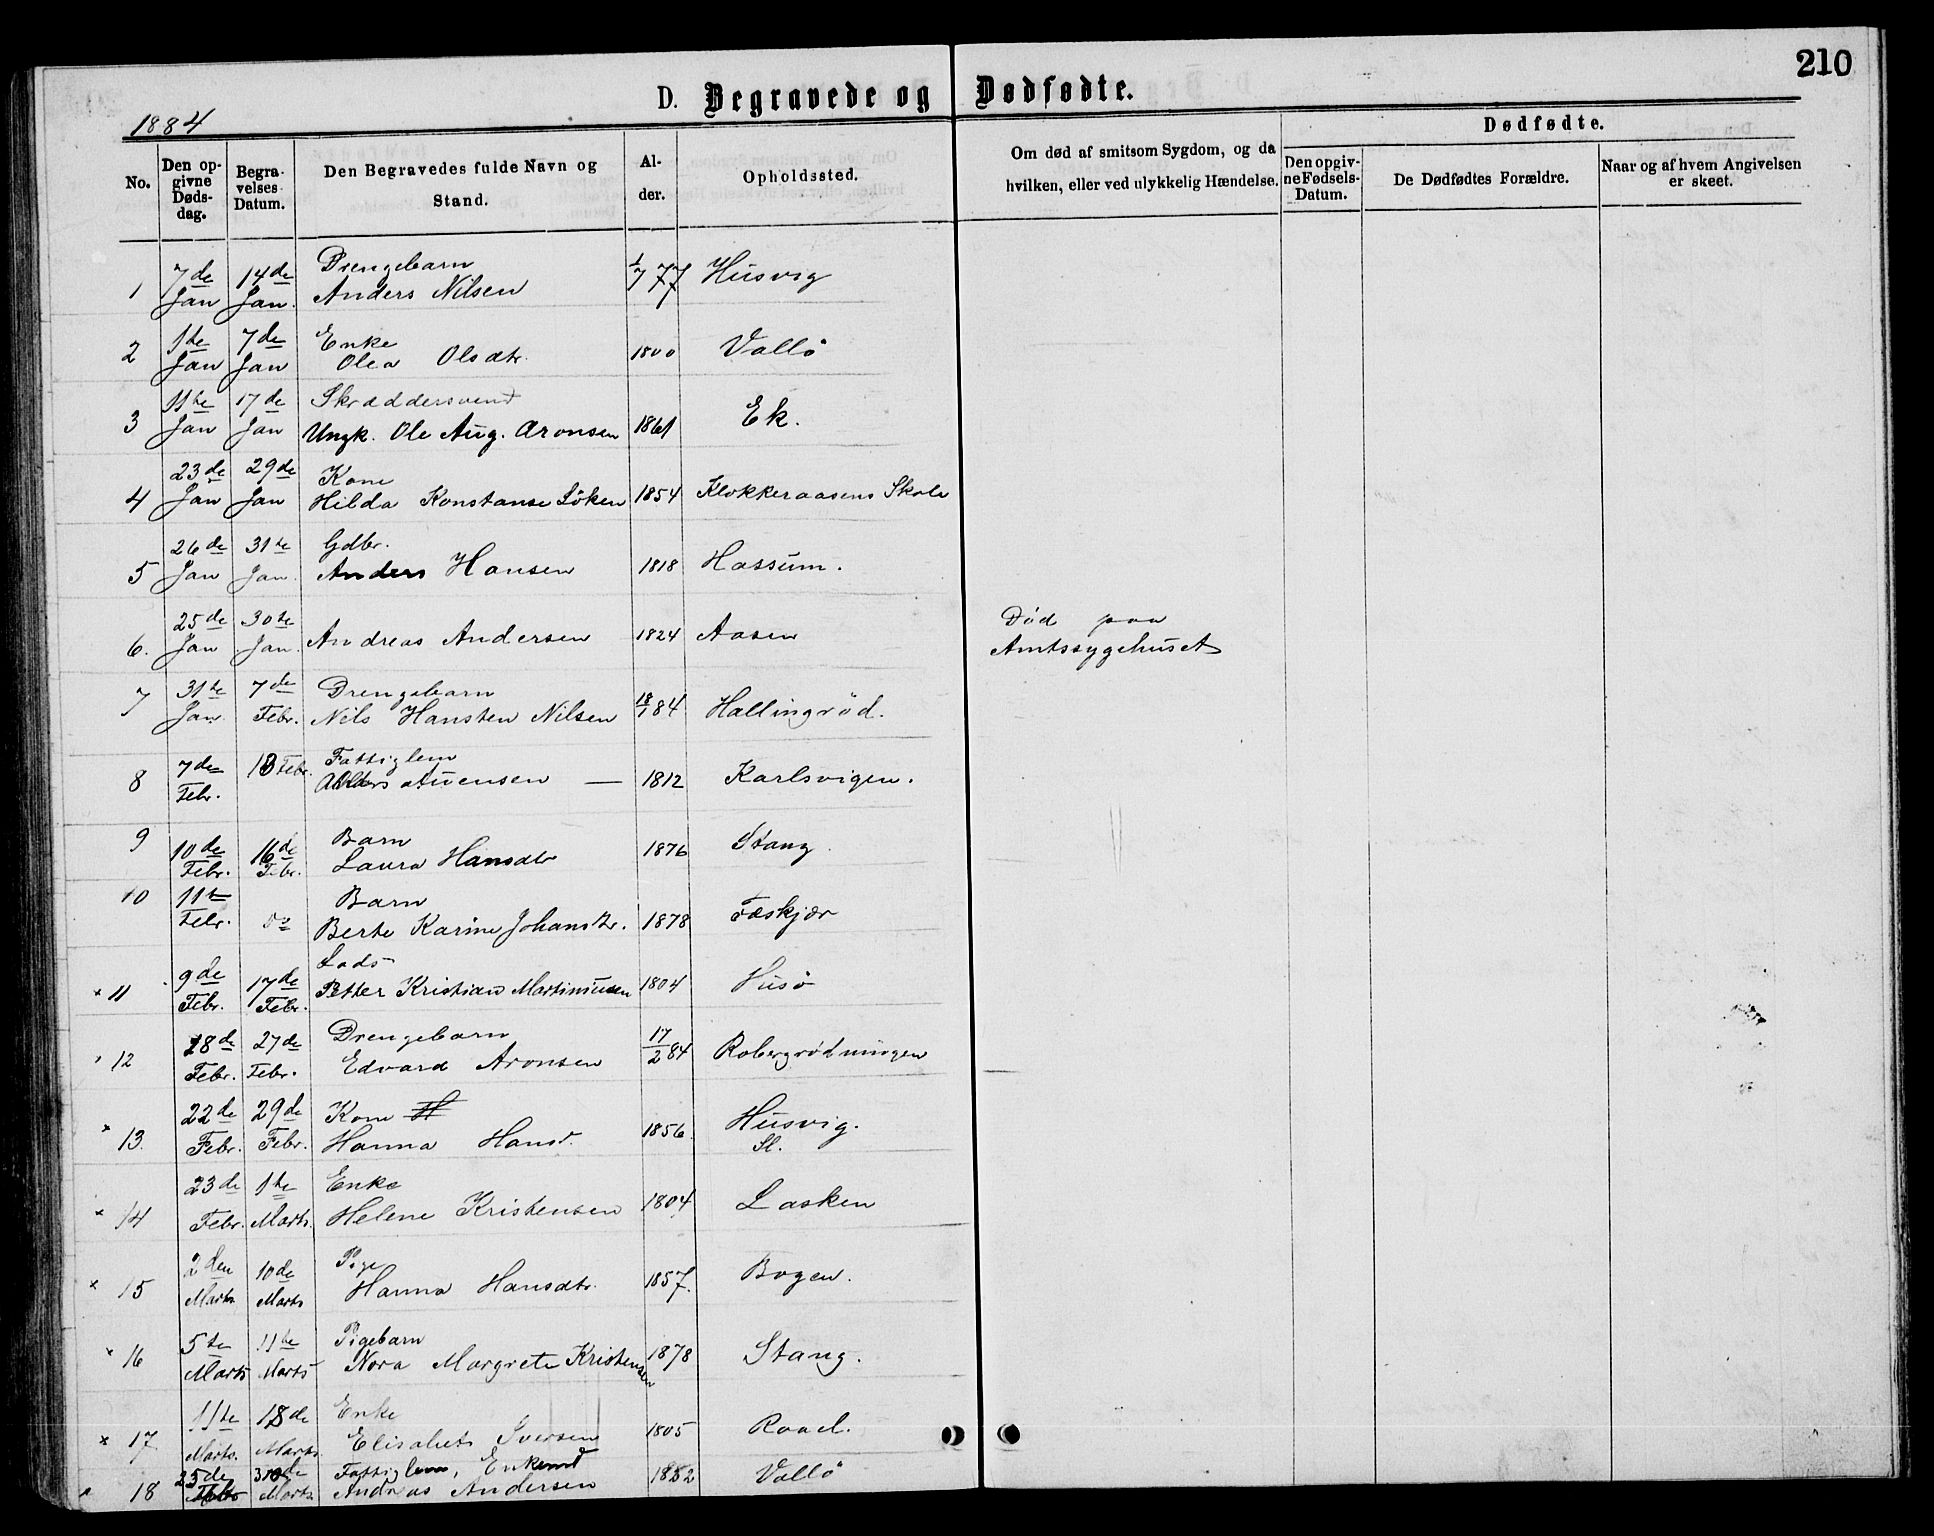 210
D. Begravede og Dødfødte.
1884
No.
Den opgivne Dødsdag.
Begravelses Datum.
Den Begravedes fulde Navn og Stand.
Alder.
Opholdssted.
Om død af smitsom Sygdom, og da hvilken, eller ved ulykkelig Hændelse.
Dødfødte.
Den opgivne Fødsels-Datum.
De Dødfødtes Forældre.
Naar og af hvem Angivelsen er skeet.
1 7de Jan 14de Jan. Drengebarn Anders Nilsen 1/7 77 Husvig
2 1te Jan 7de Jan Enke Olea Olsdtr. 1800 Vallö
3 11te Jan 17de Jan Skræddersvend Ungk. Ole Aug. Aronsen 1861 Ek.
4 23de Jan 29de Jan Kone Hilda Konstanse Löken 1854 Klokkeraasens Skole
5 26de Jan 31te Jan. Gdbr. Anders Hansen 1818 Hassum.
6. 25de Jan 30te Jan. Andreas Andersen 1824 Aasen Död paa Amtssygehuset
7 31te Jan. 7de Febr. Drengebarn Nils Hansten Nilsen 18/1 84 Hallingröd.
8 7de Febr. 13 Febr. Fattiglem 1812 Karlsvigen.
9 10de Febr. 16de Febr. Barn Laura Hansdtr 1876 Stang.
10 11te Febr. Do Barn Berte Karine Johansdtr. 1878 Fæskjær
× 11 9de Febr. 17de Febr. Lods Petter Kristian Martinusen 1804 Husö
12 18de Febr. 27de Febr. Drengebarn Edvard Aronsen 17/2 84 Robergrödningen
× 13. 22de Febr. 29de Febr. Kone H Hanna Hansd. 1856. Husvig. Sl.
× 14 23de Febr. 1te Marts. Enke Helene Kristensen 1804 Lasken
× 15 2den Marts 10de Marts Pige Hanna Hansdtr. 1857. Bogen.
× 16 5te Marts 11te Marts Pigebarn Nora Margrete Kristensen 1878 Stang.
× 17 11te Marts. 18de Marts. Enke Elisabet Iversen 1805 Rael.
18 25de 30de Marts. Fattiglem, Enkemd Andreas Andersen 1852 Vallö